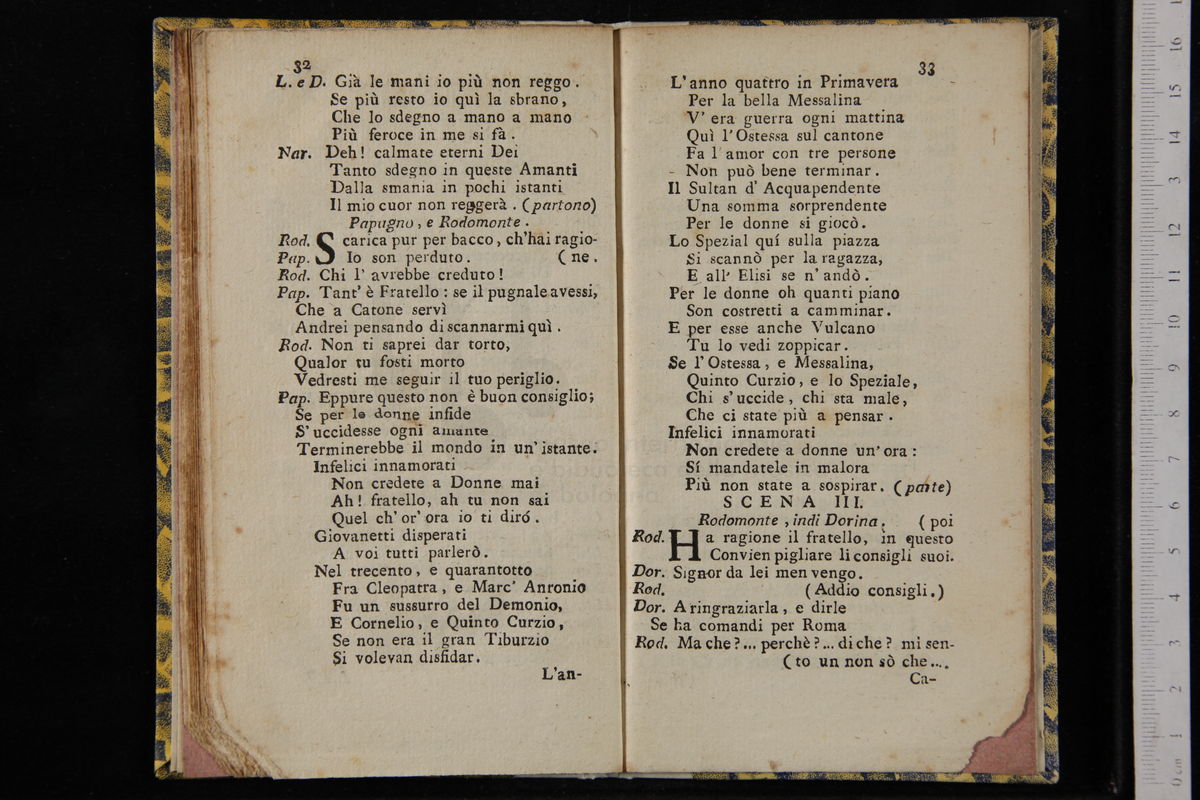 32
L. e D. Già le mani io più non reggo.
Se più resto io quì la sbrano,
Che lo sdegno a mano a mano
Più feroce in me si fà.
Nar. Deh! calmate eterni Dei
Tanto sdegno in queste Amanti
Dalla smania in pochi istanti
Il mio cuor non reggerà. (partono)
Papagno, e Rodomonte.
Rod. Scarica pur per bacco, ch'hai ragio-
Pap. Io son perduto. (ne.
Rod. Chi l' avrebbe creduto!
Pap. Tant' è Fratello: se il pugnale avessi,
Che a Catone servì
Andrei pensando di scannarmi quì.
Rod. Non ti saprei dar torto,
Qualor tu fosti morto
Vedresti me seguir il tuo periglio.
Pap. Eppure questo non è buon consiglio;
Se per le donne infide
S' uccidesse ogni amante
Terminerebbe il mondo in un' istante.
Infelici innamorati
Non credete a Donne mai
Ah! fratello, ah tu non sai
Quel ch' or' ora io ti diró.
Giovanetti disperati
A voi tutti parlerò.
Nel trecento, e quarantotto
Fra Cleopatra, e Marc' Anronio
Fu un sussurro del Demonio,
E Cornelio, e Quinto Curzio,
Se non era il gran Tiburzio
Si volevan disfidar.
L'an-
33
L' anno quattro in Primavera
Per la bella Messalina
V' era guerra ogni mattina
Quì l'Ostessa sul cantone
Fa l'amor con tre persone
- Non può bene terminar.
Il Sultan d' Acquapendente
Una somma sorprendente
Per le donne si giocò.
Lo Spezial quí sulla piazza
Si scannò per la ragazza,
E all' Elisi se n' andò.
Per le donne oh quanti piano
Son costretti a camminar.
E per esse anche Vulcano
Tu lo vedi zoppicar.
Se l' Ostessa, e Messalina,
Quinto Curzio, e lo Speziale,
Chi s' uccide, chi sta male,
Che ci state più a pensar.
Infelici innamorati
Non credete a donne un' ora:
Sí mandatele in malora
Più non state a sospirar. (parte)
SCENA III.
Rodomonte, indi Dorina. (poi
Rod. Ha ragione il fratello, in questo
Convien pigliare li consigli suoi.
Dor. Signor da lei men vengo.
Rod. (Addio consigli.)
Dor. A ringraziarla, e dirle
Se ha comandi per Roma
Rod. Ma che?... perchè?... di che? mi sen-
(to un non sò che....
Ca-